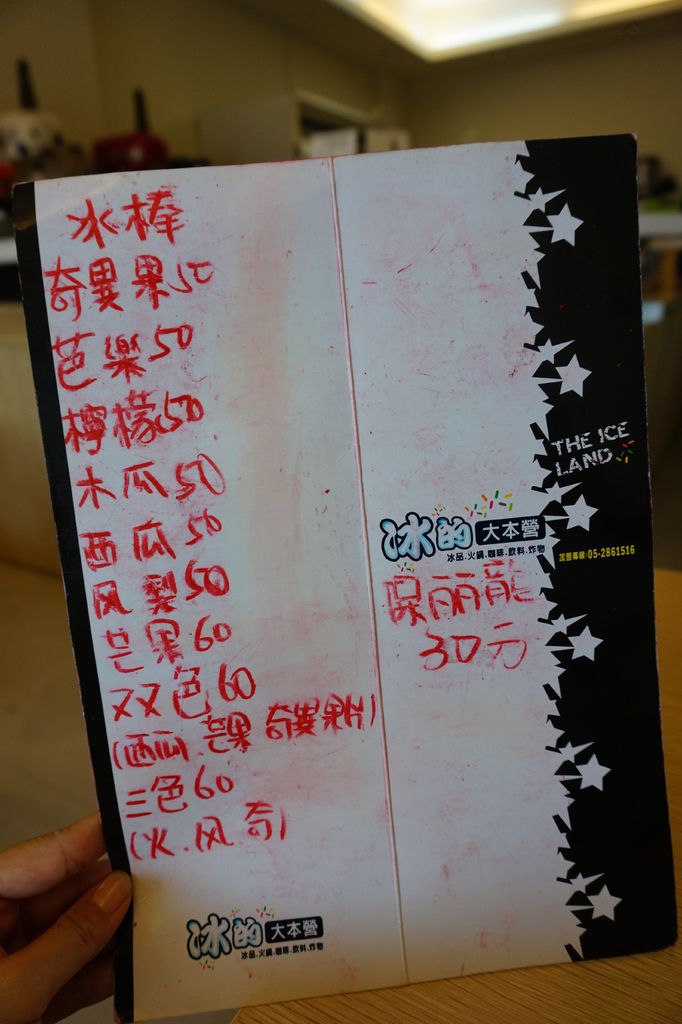 冰棒
奇異果50
芭樂50
檸檬50
木瓜50
西瓜50
风梨50
芒果60
双色60
(西瓜.芒果 奇異果片)
三色60
(火.风.奇)
冰的大本營
冰品.火鍋.咖啡.飲料.炸物
THE ICE
LAND
冰的大本營
冰品.火鍋.咖啡.飲料.炸物
加盟專線:05-2861516
龍
30元